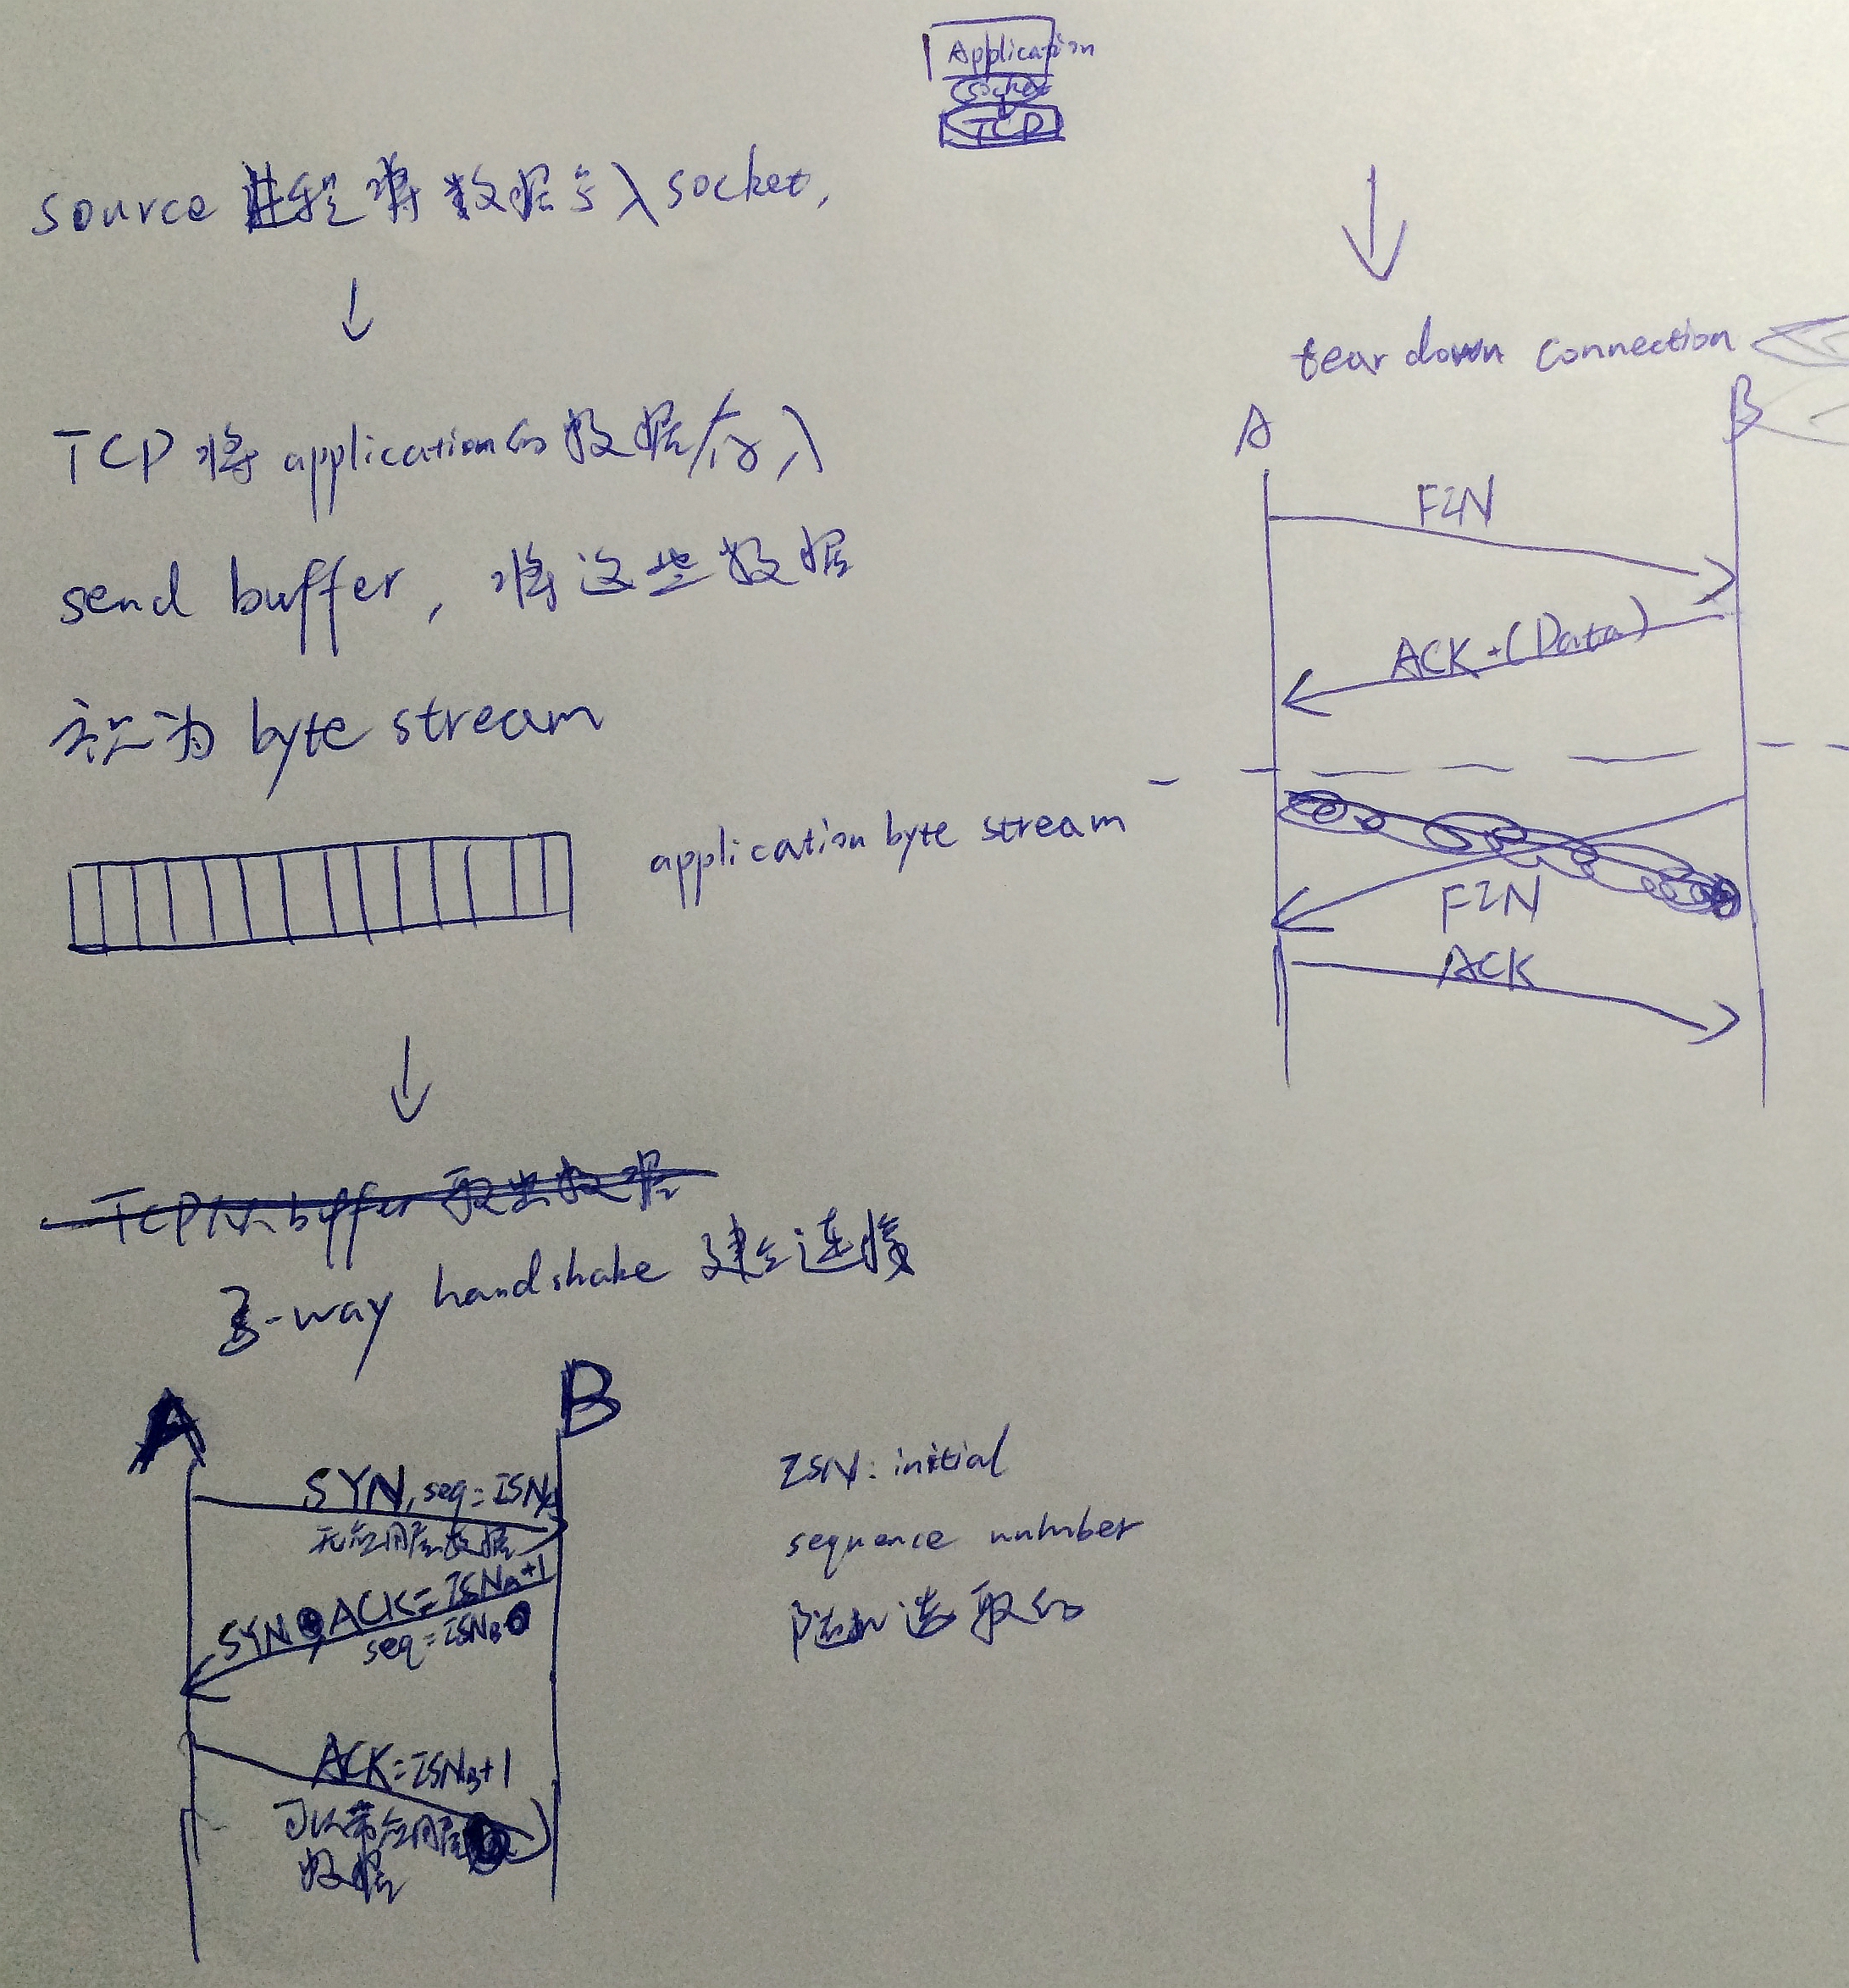 Application
socket
TCP
source 进程将数据写入 socket,
↓
TCP 将 application的数据存入
send buffer, 将这些数据
视为 byte stream
application byte stream
↓
TCP从buffer 取出数据
3-way handshake 建立连接
A B
SYN, seq=ISNA
无应用层数据
SYN, ACK=ISNA+1
seq=ISNB
ACK=ISNB+1
可以带应用层
数据
ISN: initial
sequence number
随机选取的
↓
tear down connection
A B
FIN
ACK+(Data)
FIN
ACK